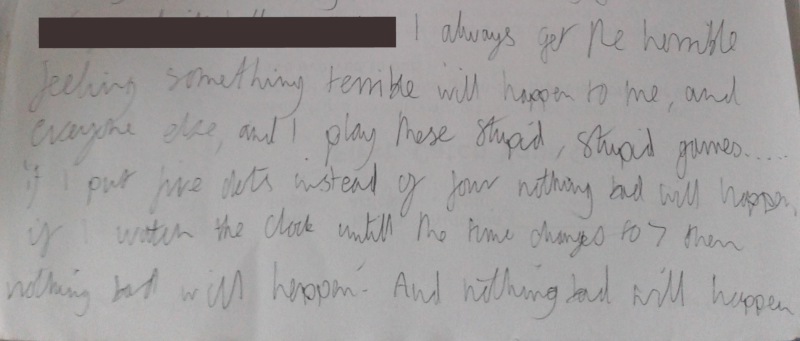 I always get the horrible
feeling something terrible will happen to me, and
everyone else, and I play these stupid, stupid games.....
if I put five dots instead of four nothing bad will happen,
if I watch the clock untill the time changes to 7 then
nothing bad will happen. And nothing bad will happen